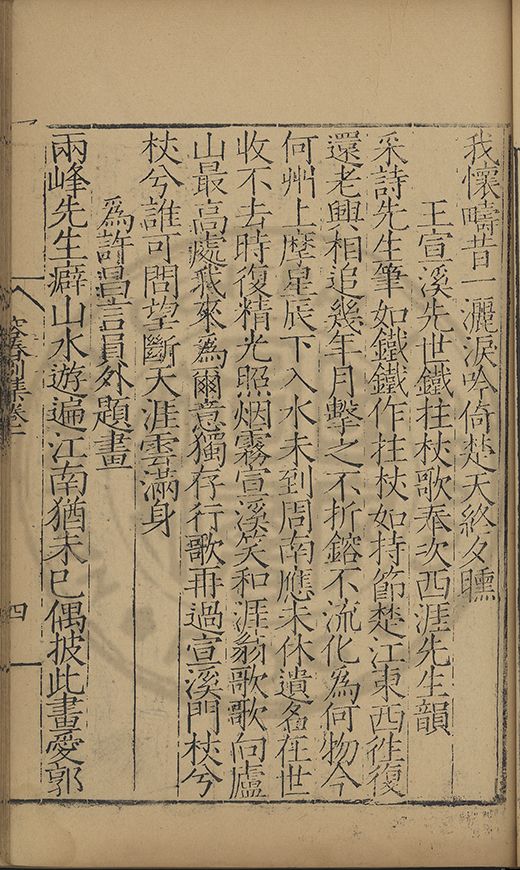 我懷疇昔一灑淚吟倚楚天終夕曛
王宣溪先世鐵柱杖歌奉次西涯先生韻
采詩先生筆如鐵鐵作拄杖如持節楚江東西往復
還老興相追幾年月擊之不折鎔不流化為何物今
何州上歷星辰下入水未到周南應未休遺名在世
收不去時復精光照烟霧宣溪笑和涯翁歌歌向廬
山最高處我來為爾意獨存行歌再過宣溪門杖兮
杖兮誰可問望斷天涯雲滿身
為許昌言員外題畫
兩峰先生癖山水遊遍江南猶未已偶披此畫愛郭
容春別集卷一
四